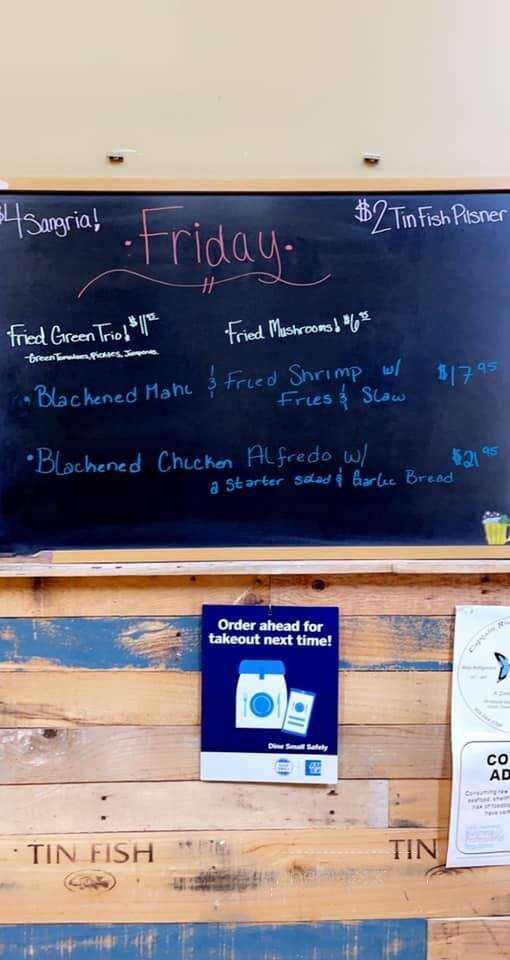 $4 Sangria!
$2 Tin Fish Pilsner
Friday
Fried Green Trio! $11.95
Green Tomatoes, Pickles, Jalapenos
Fried Mushrooms! $6.95
Blackened Mahi & Fried Shrimp w/ $17.95
Fries & Slaw
Blackened Chicken Alfredo w/ $21.95
a starter salad & Garlic Bread
Order ahead for
takeout next time!
Dine Small Safely
TIN FISH
TIN
CO
AD
Consuming raw